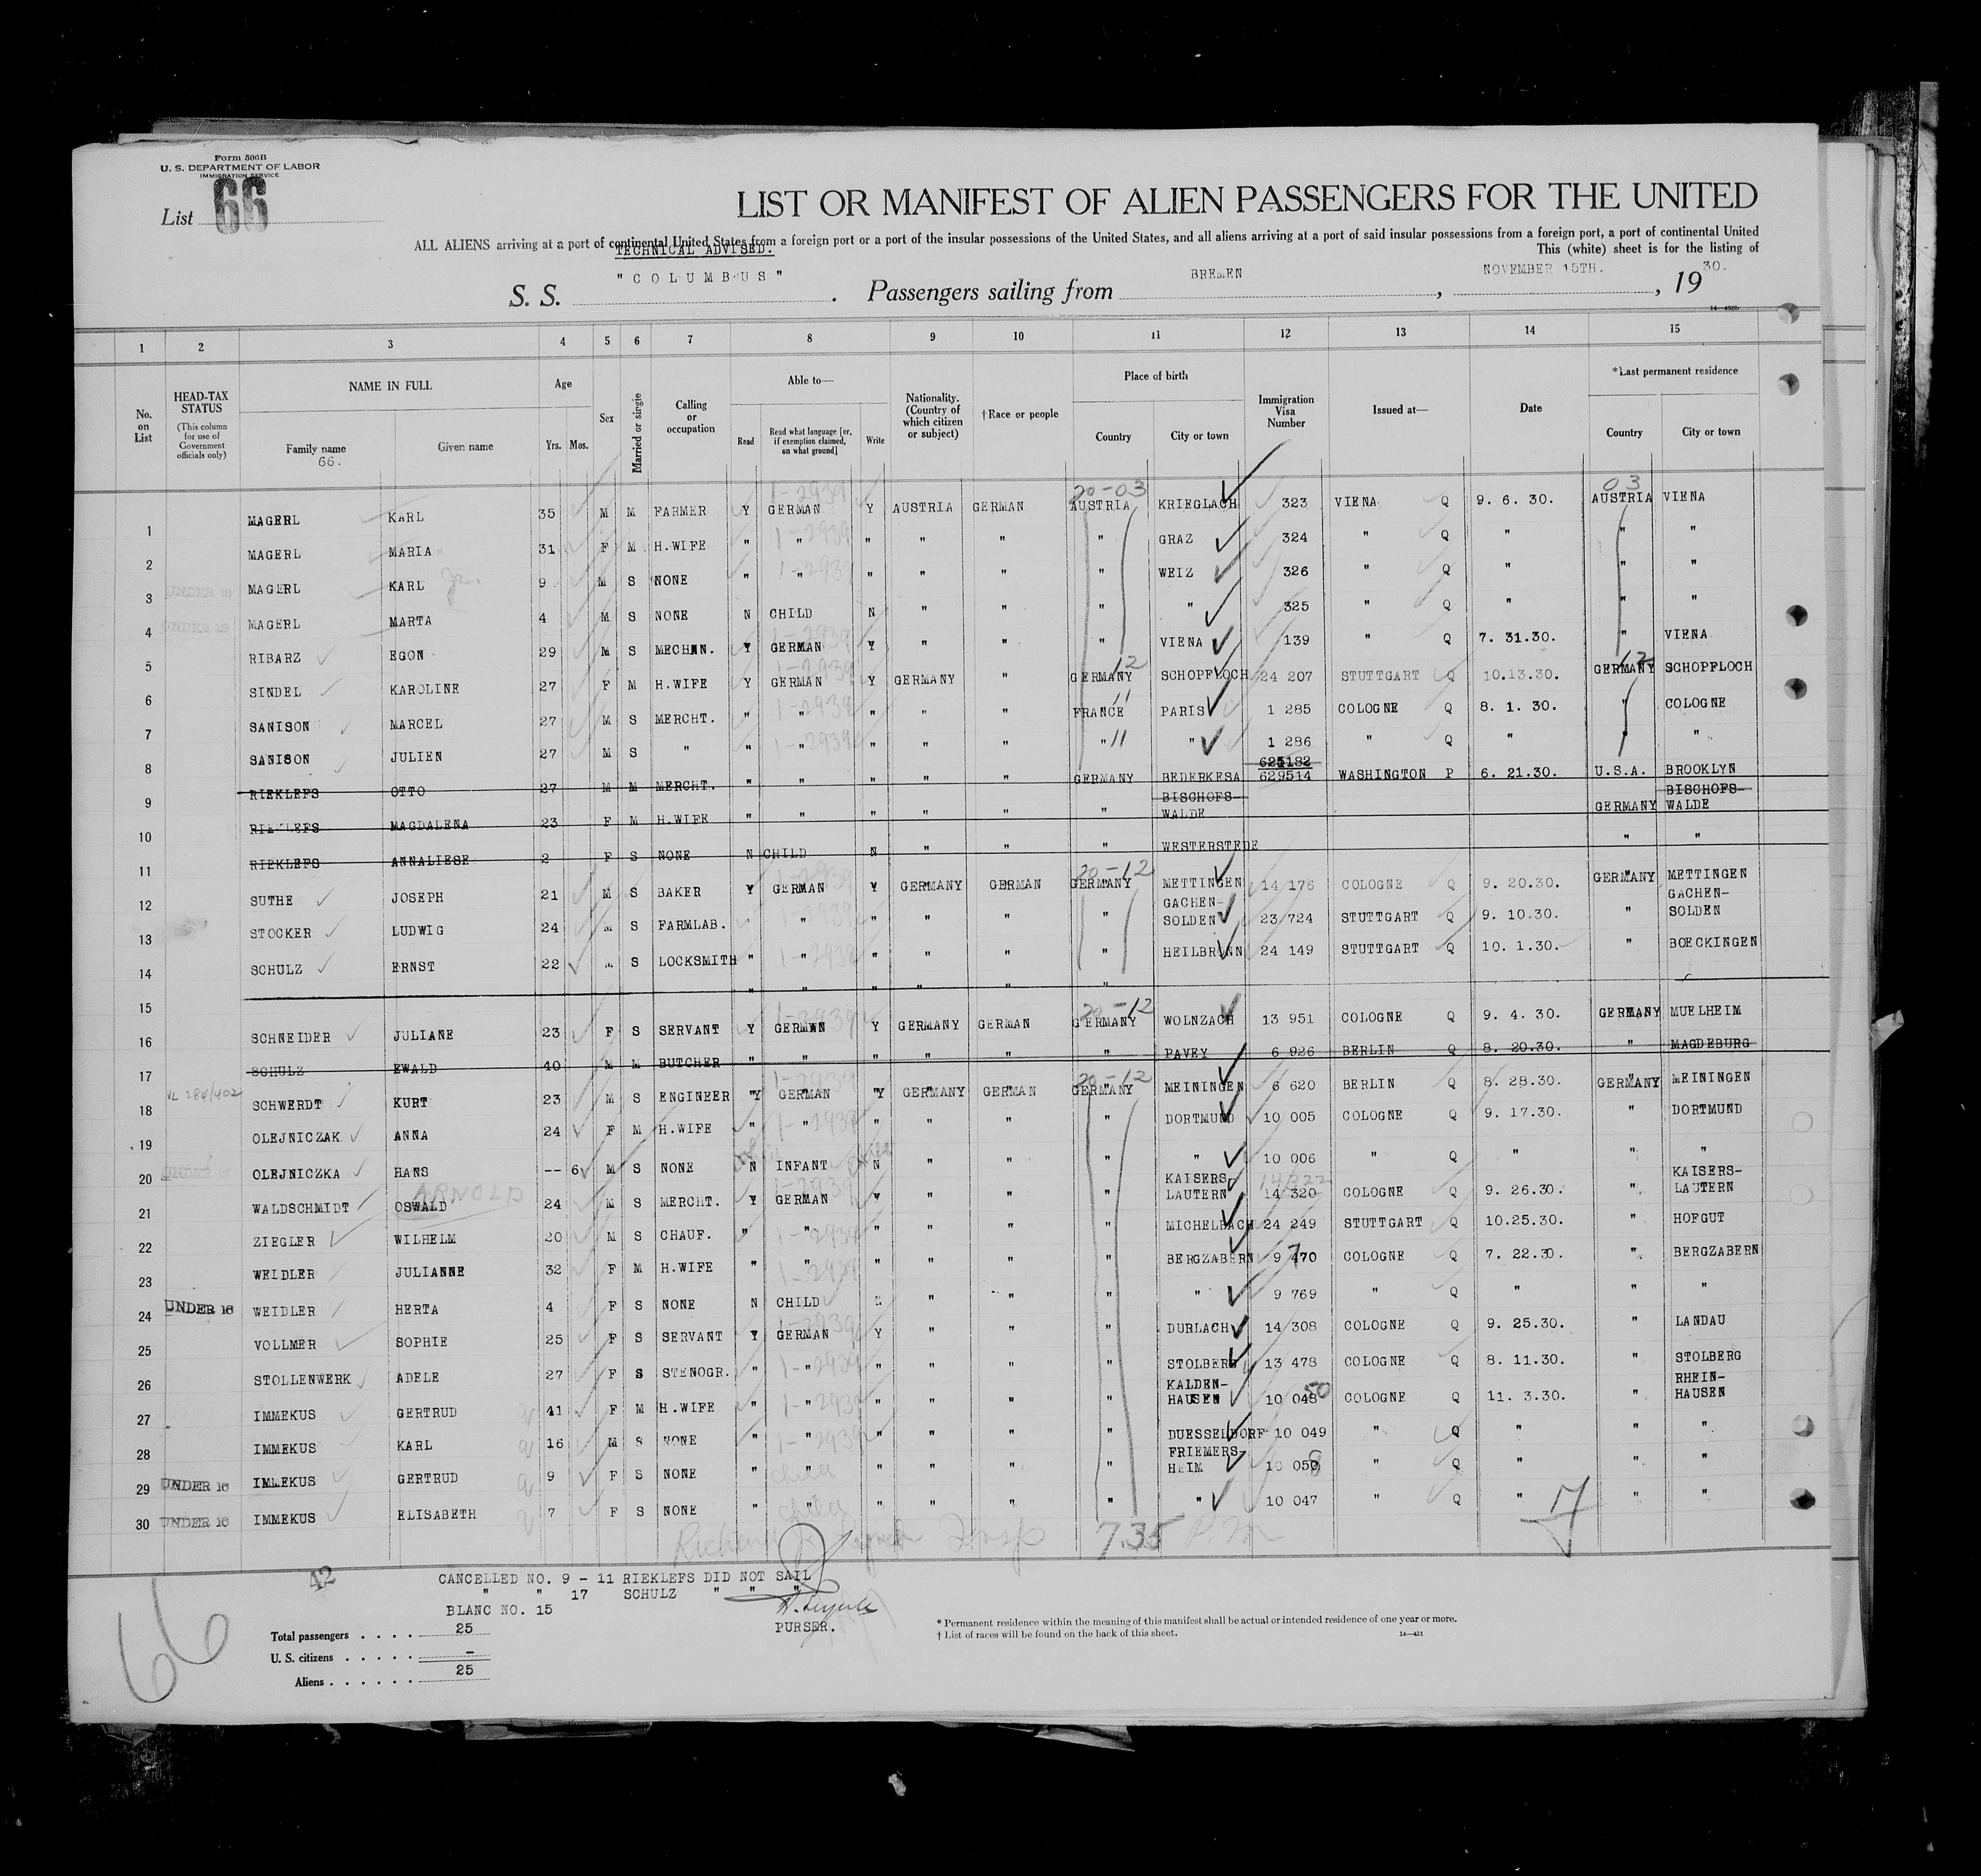 Form 500B
U. S. DEPARTMENT OF LABOR
IMMIGRATION SERVICE
List 66
LIST OR MANIFEST OF ALIEN PASSENGERS FOR THE UNITED
ALL ALIENS arriving at a port of continental United States from a foreign port or a port of the insular possessions of the United States, and all aliens arriving at a port of said insular possessions from a foreign port, a port of continental United
TECHNICAL ADVISED.
This (white) sheet is for the listing of
S. S. "COLUMBUS" . Passengers sailing from BREMEN , NOVEMBER 15TH. , 1930.
1 2 3 4 5 6 7 8 9 10 11 12 13 14 15
No. on List
HEAD-TAX STATUS (This column for use of Government officials only)
NAME IN FULL Family name Given name
66.
Age Yrs. Mos.
Sex
Married or single
Calling or occupation
Able to— Read Read what language [or, if exemption claimed, on what ground] Write
Nationality. (Country of which citizen or subject)
†Race or people
Place of birth Country City or town
Immigration Visa Number
Issued at—
Date
*Last permanent residence Country City or town
20-03 03
1 MAGERL KARL 35 M M FARMER Y GERMAN Y AUSTRIA GERMAN AUSTRIA KRIEGLACH 323 VIENA Q 9. 6. 30. AUSTRIA VIENA
2 MAGERL MARIA 31 F M H.WIFE " " " " " " GRAZ 324 " Q " " "
3 UNDER 16 MAGERL KARL Jr. 9 M S NONE " " " " " " WEIZ 326 " Q " " "
4 UNDER 16 MAGERL MARTA 4 M S NONE N CHILD N " " " " 325 " Q " " "
5 RIBARZ EGON 29 M S MECHAN. Y GERMAN Y " " " VIENA 139 " Q 7. 31.30. " VIENA
6 SINDEL KAROLINE 27 F M H.WIFE Y GERMAN Y GERMANY " GERMANY 12 SCHOPFLOCH 24 207 STUTTGART Q 10.13.30. GERMANY 12 SCHOPFLOCH
7 SANISON MARCEL 27 M S MERCHT. " " " " " FRANCE 11 PARIS 1 285 COLOGNE Q 8. 1. 30. " COLOGNE
8 SANISON JULIEN 27 M S " " " " " " " 11 " 1 286 " Q " " "
9 RIEKLEFS OTTO 27 M M MERCHT. " " " " " GERMANY BEDERKESA 629514 WASHINGTON P 6. 21.30. U.S.A. BROOKLYN
10 RIEKLEFS MAGDALENA 23 F M H.WIFE " " " " " " BISCHOFS-WALDE GERMANY BISCHOFS-WALDE
11 RIEKLEFS ANNALIESE 2 F S NONE N CHILD N " " " WESTERSTEDE " "
20-12
12 SUTHE JOSEPH 21 M S BAKER Y GERMAN Y GERMANY GERMAN GERMANY METTINGEN 14 176 COLOGNE Q 9. 20.30. GERMANY METTINGEN
13 STOCKER LUDWIG 24 M S FARMLAB. " " " " " " GACHEN-SOLDEN 23 724 STUTTGART Q 9. 10.30. " GACHEN-SOLDEN
14 SCHULZ ERNST 22 M S LOCKSMITH " " " " " " HEILBRONN 24 149 STUTTGART Q 10. 1.30. " BOECKINGEN
15 " " " " " "
20-12
16 SCHNEIDER JULIANE 23 F S SERVANT Y GERMAN Y GERMANY GERMAN GERMANY WOLNZACH 13 951 COLOGNE Q 9. 4. 30. GERMANY MUELHEIM
17 SCHULZ EWALD 40 M M BUTCHER " " " " " " PAVEY 6 926 BERLIN Q 8. 20.30. " MAGDEBURG
20-12
18 SCHWERDT KURT 23 M S ENGINEER Y GERMAN Y GERMANY GERMAN GERMANY MEININGEN 6 620 BERLIN Q 8. 28.30. GERMANY MEININGEN
19 OLEJNICZAK ANNA 24 F M H.WIFE " " " " " " DORTMUND 10 005 COLOGNE Q 9. 17.30. " DORTMUND
20 UNDER 16 OLEJNICZKA HANS -- 6 M S NONE N INFANT N " " " " 10 006 " Q " " "
21 WALDSCHMIDT OSWALD ARNOLD 24 M S MERCHT. Y GERMAN Y " " " KAISERS-LAUTERN 14 320 COLOGNE Q 9. 26.30. " KAISERS-LAUTERN
22 ZIEGLER WILHELM 20 M S CHAUF. " " " " " " MICHELBACH 24 249 STUTTGART Q 10.25.30. " HOFGUT
23 WEIDLER JULIANNE 32 F M H.WIFE " " " " " " BERGZABERN 9 470 7 COLOGNE Q 7. 22.30. " BERGZABERN
24 UNDER 16 WEIDLER HERTA 4 F S NONE N CHILD N " " " " 9 769 " Q " " "
25 VOLLMER SOPHIE 25 F S SERVANT Y GERMAN Y " " " DURLACH 14 308 COLOGNE Q 9. 25.30. " LANDAU
26 STOLLENWERK ADELE 27 F S STENOGR. " " " " " " STOLBERG 13 478 COLOGNE Q 8. 11.30. " STOLBERG
27 IMMEKUS GERTRUD 41 F M H.WIFE " " " " " " KALDEN-HAUSEN 10 048 50 COLOGNE Q 11. 3.30. " RHEIN-HAUSEN
28 IMMEKUS KARL 16 M S NONE " " " " " " DUESSELDORF 10 049 " Q " " "
29 UNDER 16 IMMEKUS GERTRUD 9 F S NONE " " " " " " FRIEMERS-HEIM 10 050 8 " Q " " "
30 UNDER 16 IMMEKUS ELISABETH 7 F S NONE " " " " " " " 10 047 " Q " " "
7.35 P.M.
42
66
CANCELLED NO. 9 - 11 RIEKLEFS DID NOT SAIL
" " 17 SCHULZ " " "
BLANC NO. 15
PURSER.
Total passengers . . . . 25
U. S. citizens . . . . . –
Aliens . . . . . . 25
* Permanent residence within the meaning of this manifest shall be actual or intended residence of one year or more.
† List of races will be found on the back of this sheet.
14—431